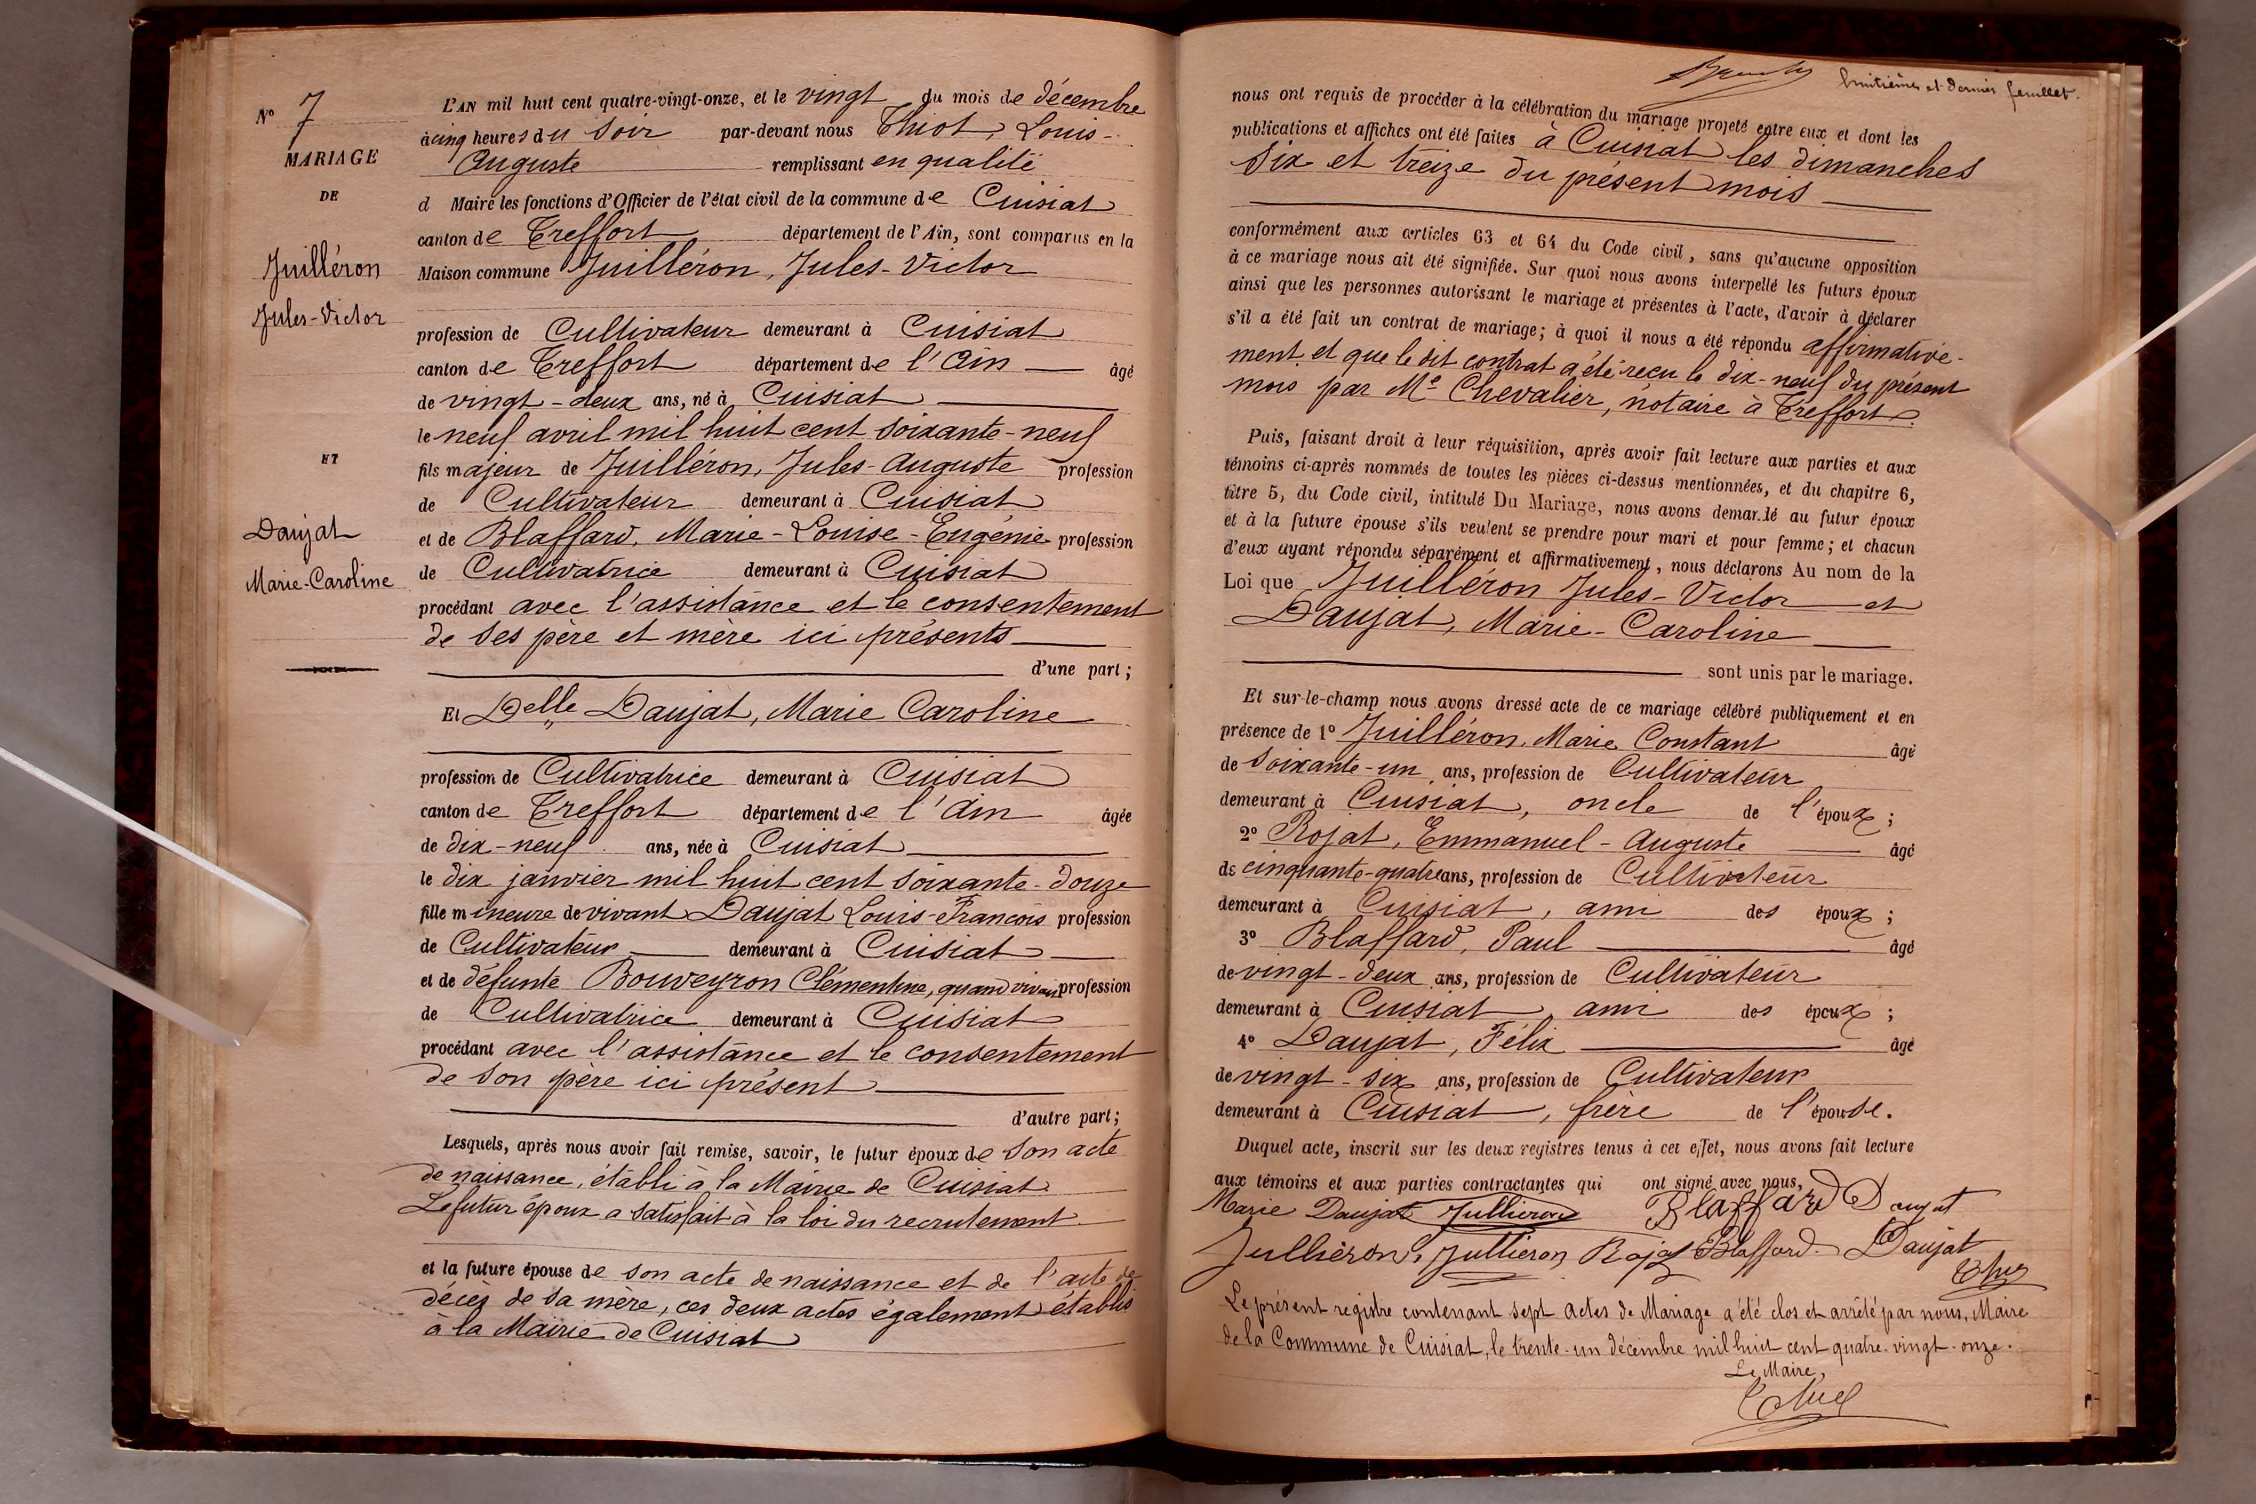 N° 7
MARIAGE
DE
Juilléron
Jules-Victor
ET
Daujat
Marie-Caroline
L'AN mil huit cent quatre-vingt-onze, et le vingt du mois de décembre
à cinq heures du soir par-devant nous Thiot, Louis-
Auguste remplissant en qualité
d Maire les fonctions d'Officier de l'état civil de la commune de Cuisiat
canton de Treffort département de l'Ain, sont comparus en la
Maison commune Juilléron, Jules-Victor
profession de Cultivateur demeurant à Cuisiat
canton de Treffort département de l'Ain âgé
de vingt-deux ans, né à Cuisiat
le neuf avril mil huit cent soixante-neuf
fils majeur de Juilléron, Jules-Auguste profession
de Cultivateur demeurant à Cuisiat
et de Blaffard, Marie-Louise-Eugénie profession
de Cultivatrice demeurant à Cuisiat
procédant avec l'assistance et le consentement
de ses père et mère ici présents
d'une part;
Et Delle Daujat, Marie Caroline
profession de Cultivatrice demeurant à Cuisiat
canton de Treffort département de l'Ain âgée
de dix-neuf ans, née à Cuisiat
le dix janvier mil huit cent soixante-douze
fille mineure de vivant Daujat Louis-François profession
de Cultivateur demeurant à Cuisiat
et de défunte Bouveyron Clémentine, quand vivait profession
de Cultivatrice demeurant à Cuisiat
procédant avec l'assistance et le consentement
de son père ici présent
d'autre part;
Lesquels, après nous avoir fait remise, savoir, le futur époux de son acte
de naissance, établi à la Mairie de Cuisiat.
Le futur époux a satisfait à la loi du recrutement.
et la future épouse de son acte de naissance et de l'acte de
décès de sa mère, ces deux actes également établis
à la Mairie de Cuisiat
huitième et dernier feuillet.
nous ont requis de procéder à la célébration du mariage projeté entre eux et dont les
publications et affiches ont été faites à Cuisiat les dimanches
six et treize du présent mois
conformément aux articles 63 et 64 du Code civil, sans qu'aucune opposition
à ce mariage nous ait été signifiée. Sur quoi nous avons interpellé les futurs époux
ainsi que les personnes autorisant le mariage et présentes à l'acte, d'avoir à déclarer
s'il a été fait un contrat de mariage; à quoi il nous a été répondu affirmative-
ment et que le dit contrat a été reçu le dix-neuf du présent
mois par Me Chevalier, notaire à Treffort.
Puis, faisant droit à leur réquisition, après avoir fait lecture aux parties et aux
témoins ci-après nommés de toutes les pièces ci-dessus mentionnées, et du chapitre 6,
titre 5, du Code civil, intitulé Du Mariage, nous avons demandé au futur époux
et à la future épouse s'ils veulent se prendre pour mari et pour femme; et chacun
d'eux ayant répondu séparément et affirmativement, nous déclarons Au nom de la
Loi que Juilléron Jules-Victor et
Daujat, Marie-Caroline
sont unis par le mariage.
Et sur-le-champ nous avons dressé acte de ce mariage célébré publiquement et en
présence de 1° Juilléron, Marie Constant âgé
de soixante-un ans, profession de Cultivateur
demeurant à Cuisiat, oncle de l'époux;
2° Rojat, Emmanuel-Auguste âgé
de cinquante-quatre ans, profession de Cultivateur
demeurant à Cuisiat, ami des époux;
3° Blaffard, Paul âgé
de vingt-deux ans, profession de Cultivateur
demeurant à Cuisiat, ami des époux;
4° Daujat, Félix âgé
de vingt-six ans, profession de Cultivateur
demeurant à Cuisiat, frère de l'épouse.
Duquel acte, inscrit sur les deux registres tenus à cet effet, nous avons fait lecture
aux témoins et aux parties contractantes qui ont signé avec nous,
Marie Daujat Jullieron Blaffard Daujat
Julliéron, Jullieron Rojat Blaffard Daujat
Le présent registre contenant sept actes de Mariage a été clos et arrêté par nous, Maire
de la Commune de Cuisiat, le trente-un décembre mil huit cent quatre-vingt-onze.
Le Maire,